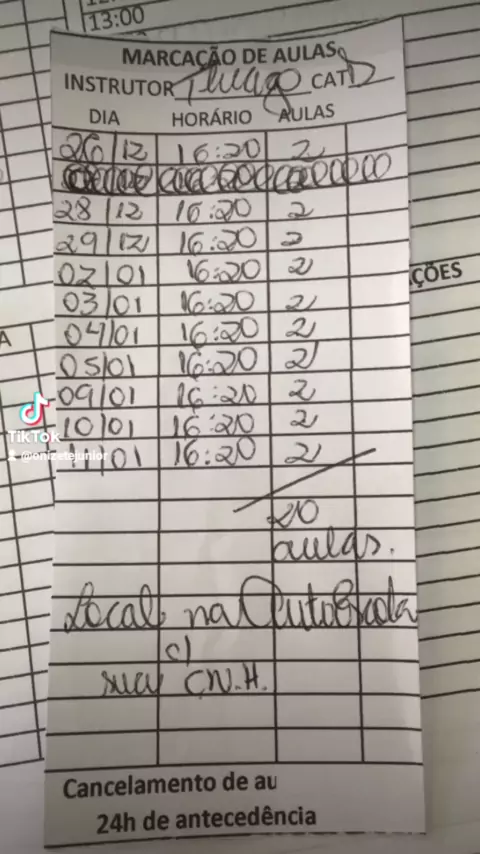 13:00
MARCAÇÃO DE AULAS
INSTRUTOR Thiago CAT D
DIA HORÁRIO AULAS
26/12 16:20 2
28/12 16:20 2
29/12 16:20 2
02/01 16:20 2
03/01 16:20 2
04/01 16:20 2
05/01 16:20 2
09/01 16:20 2
10/01 16:20 2
11/01 16:20 2
20
aulas.
Local na AutoEscola
c/
sua CN.H.
Cancelamento de au
24h de antecedência
ÇÕES
A
TikTok
@onizetejunior